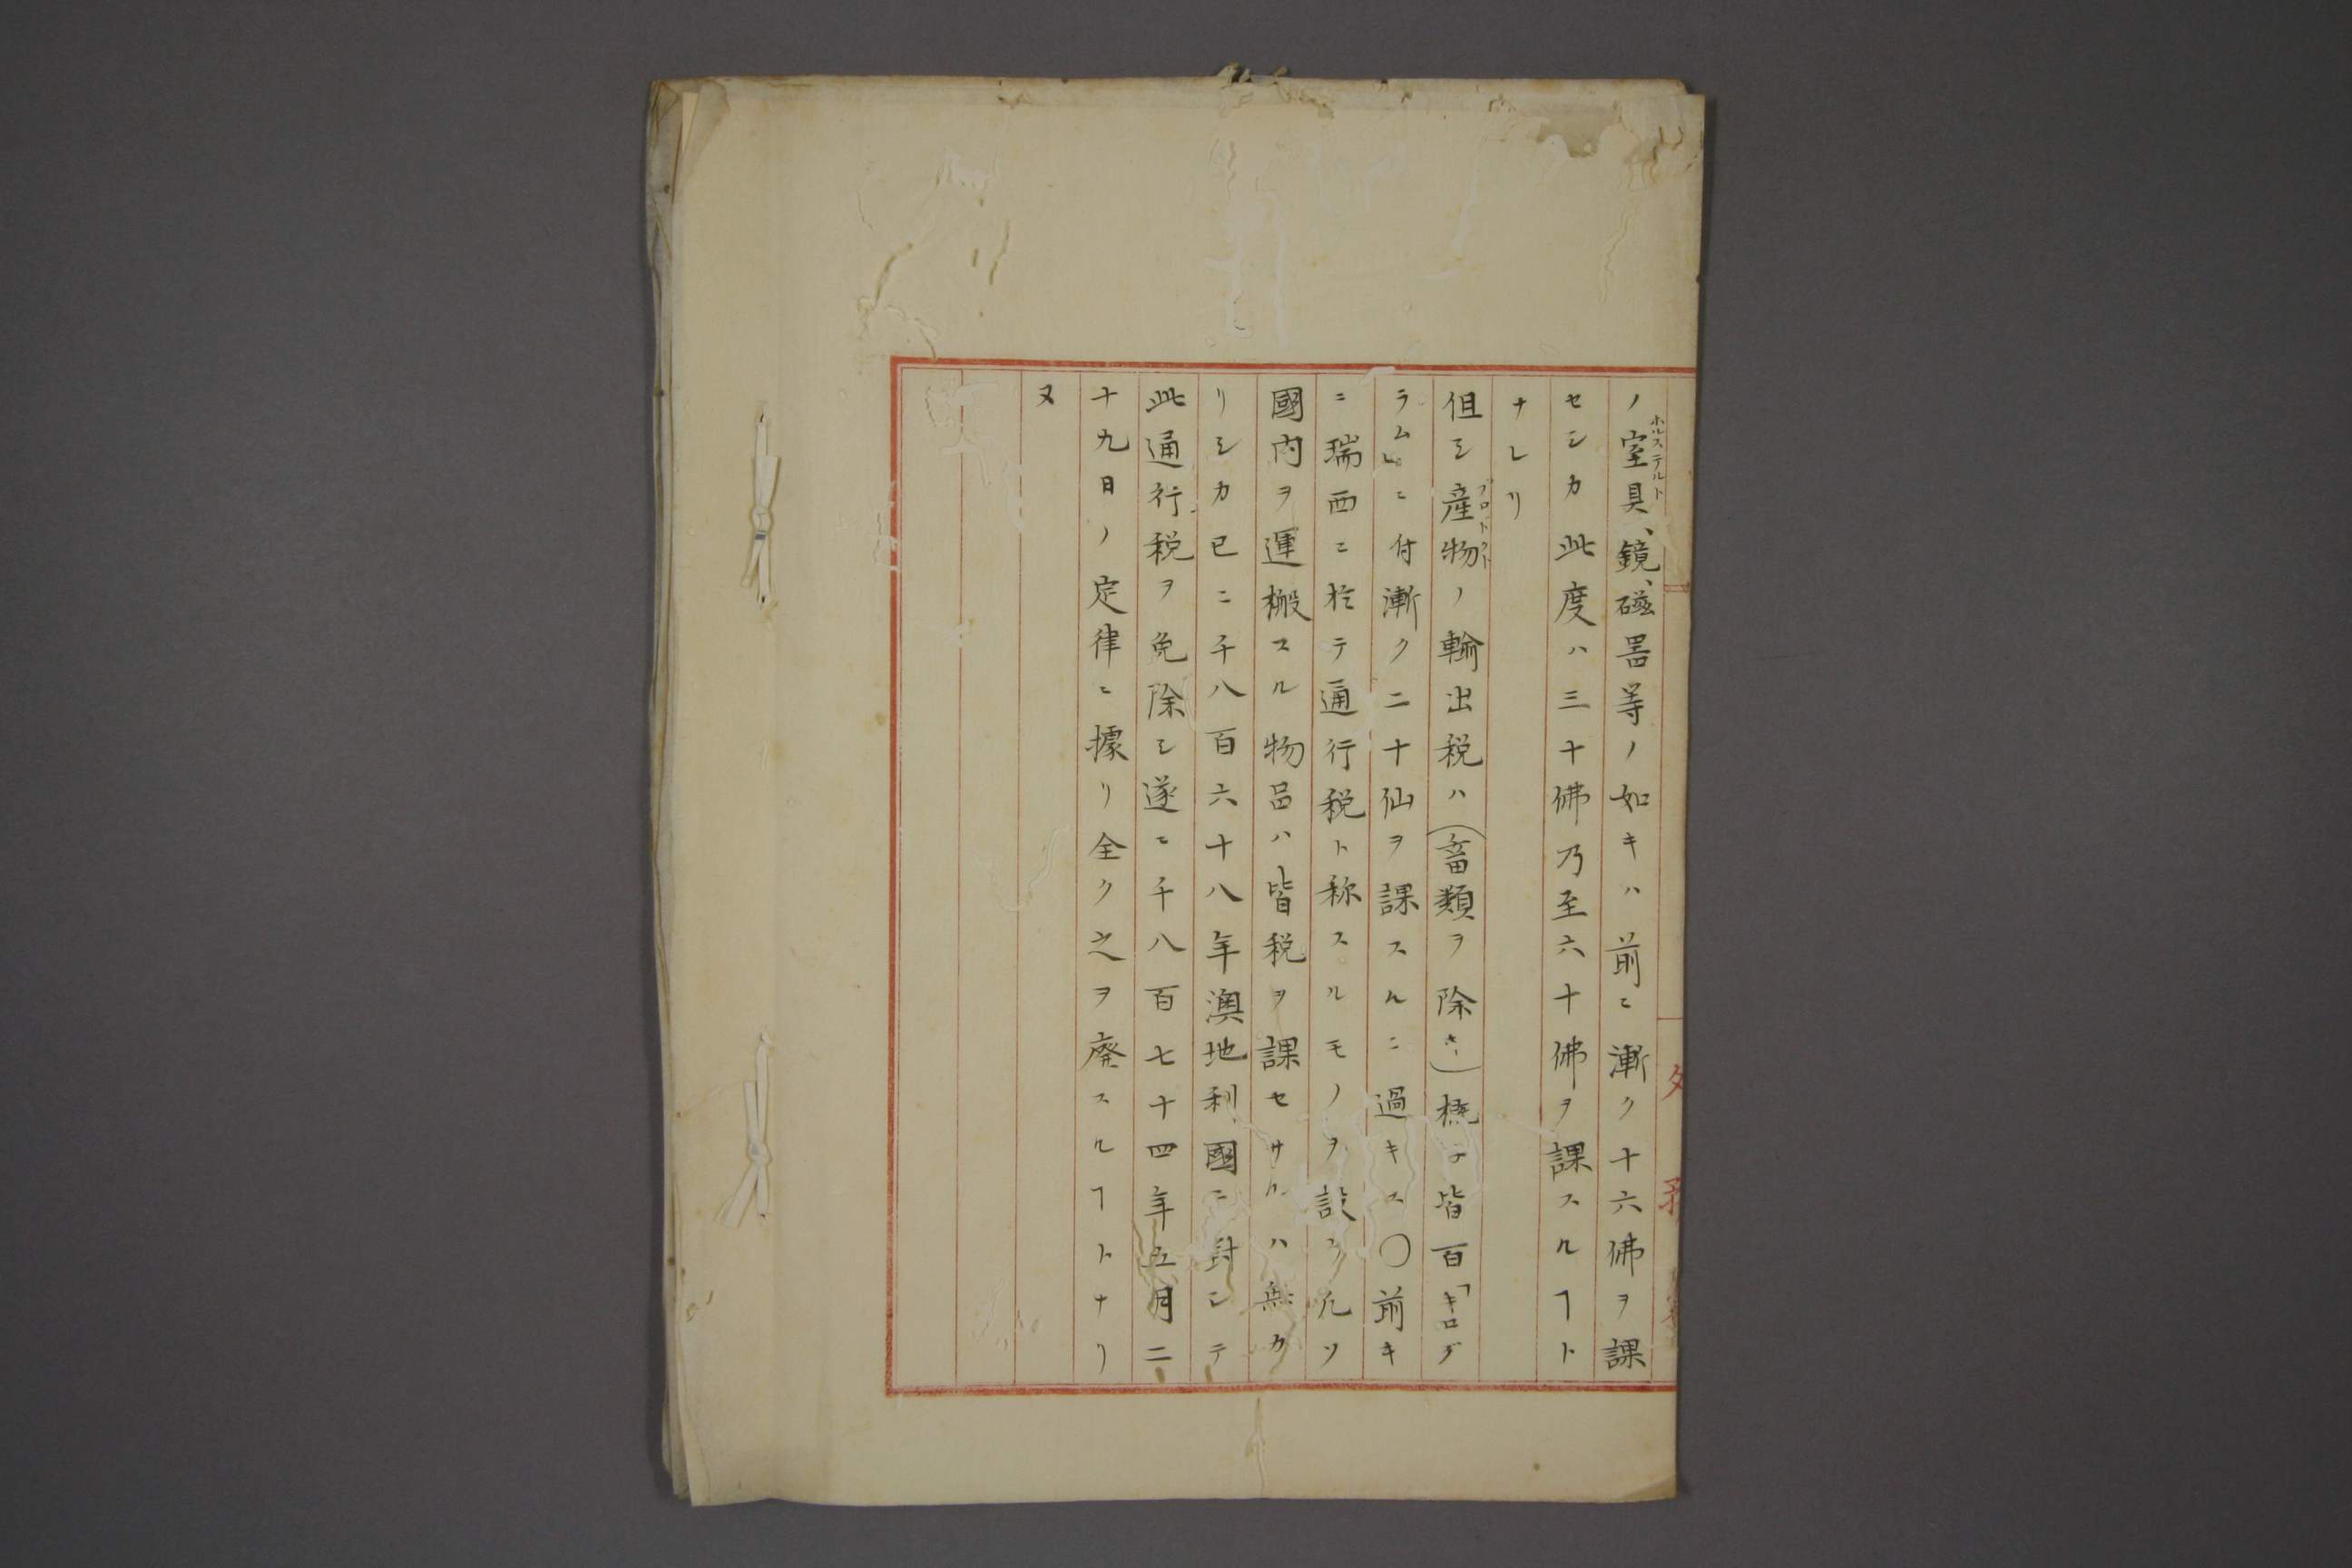 ノ室具、鏡、磁器等ノ如キハ前ニ漸ク十六佛ヲ課
ホルステルト
セシカ此度ハ三十佛乃至六十佛ヲ課スルヿト
ナレリ
但シ産物ノ輸出税ハ(畜類ヲ除キ)概子皆百「キログ
プロドクト
ラム」ニ付漸ク二十仙ヲ課スルニ過キス〇前キ
ニ瑞西ニ於テ通行税ト称スルモノヲ設ク凡ソ
國内ヲ運搬スル物品ハ皆税ヲ課セサルハ無カ
リシカ已ニ千八百六十八年澳地利國ニ対シテ
此通行税ヲ免除シ遂ニ千八百七十四年五月二
十九日ノ定律ニ據リ全ク之ヲ廃スルヿトナリ
ヌ
外務